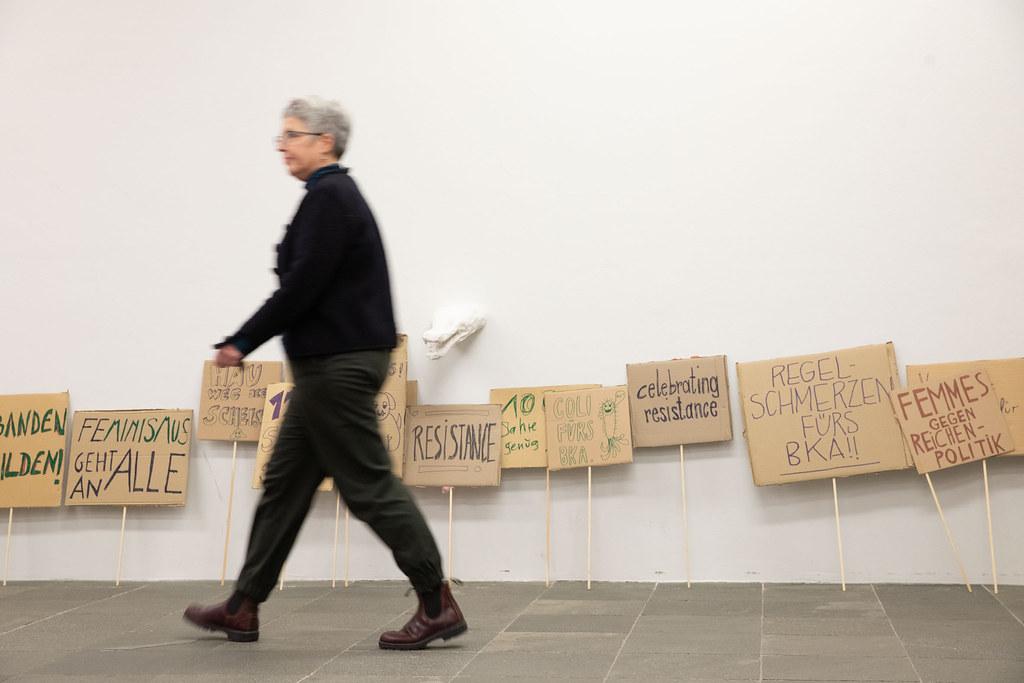 BANDEN
ILDEN!
FEMINISMUS
GEHT ALLE
AN
HAU
WEG DIE
SCHEIS
1
!
RESISTANCE
10
Jahre
genug
COLI
FÜRS
BKA.
celebrating
resistance
REGEL-
SCHMERZEN
FÜRS
BKA!!
FEMMES
GEGEN
REICHEN-
POLITIK
für